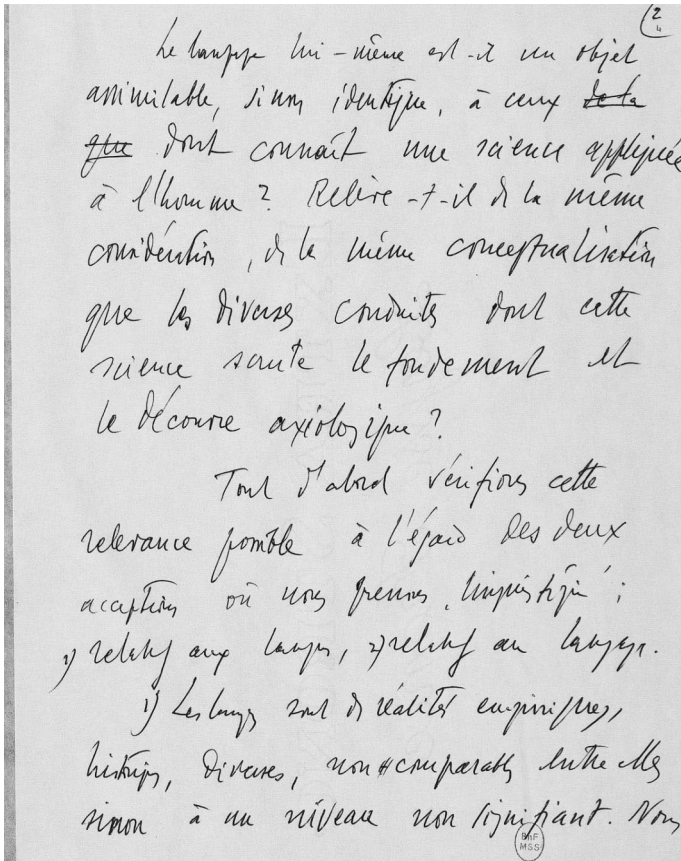 2
Le langage lui-même est-il un objet
assimilable, sinon identique, à ceux de la
que dont connaît une science appliquée
à l'homme ? Relève-t-il de la même
considération, de la même conceptualisation
que les diverses conduites dont cette
science scrute le fondement et
le axiologique ?
Tout d'abord vérifions cette
relevance possible à l'égard des deux
acceptions où nous prenons "linguistique" :
1) relatif aux langues, 2) relatif au langage.
1) Les langues sont des réalités empiriques,
historiques, diverses, non comparables entre elles
sinon à un niveau non signifiant. Nous
BnF
MSS